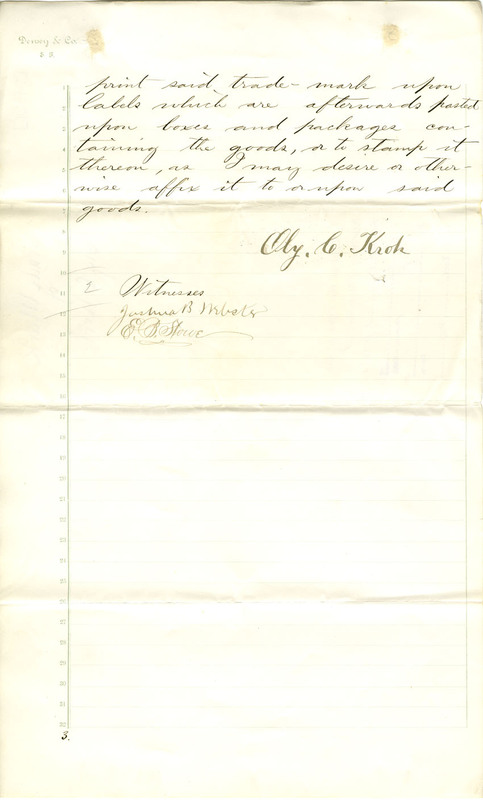 Dewey & Co.
S. F.
print said trade-mark upon
labels which are afterwards pasted
upon boxes and packages con-
taining the goods, or to stamp it
thereon, as I may desire or other-
wise affix it to or upon said
goods.
Oly. C. Kroh
2
Witnesses
Joshua B Webster
E. B. Stowe
1
2
3
4
5
6
7
8
9
10
11
12
13
14
15
16
17
18
19
20
21
22
23
24
25
26
27
28
29
30
31
32
3.